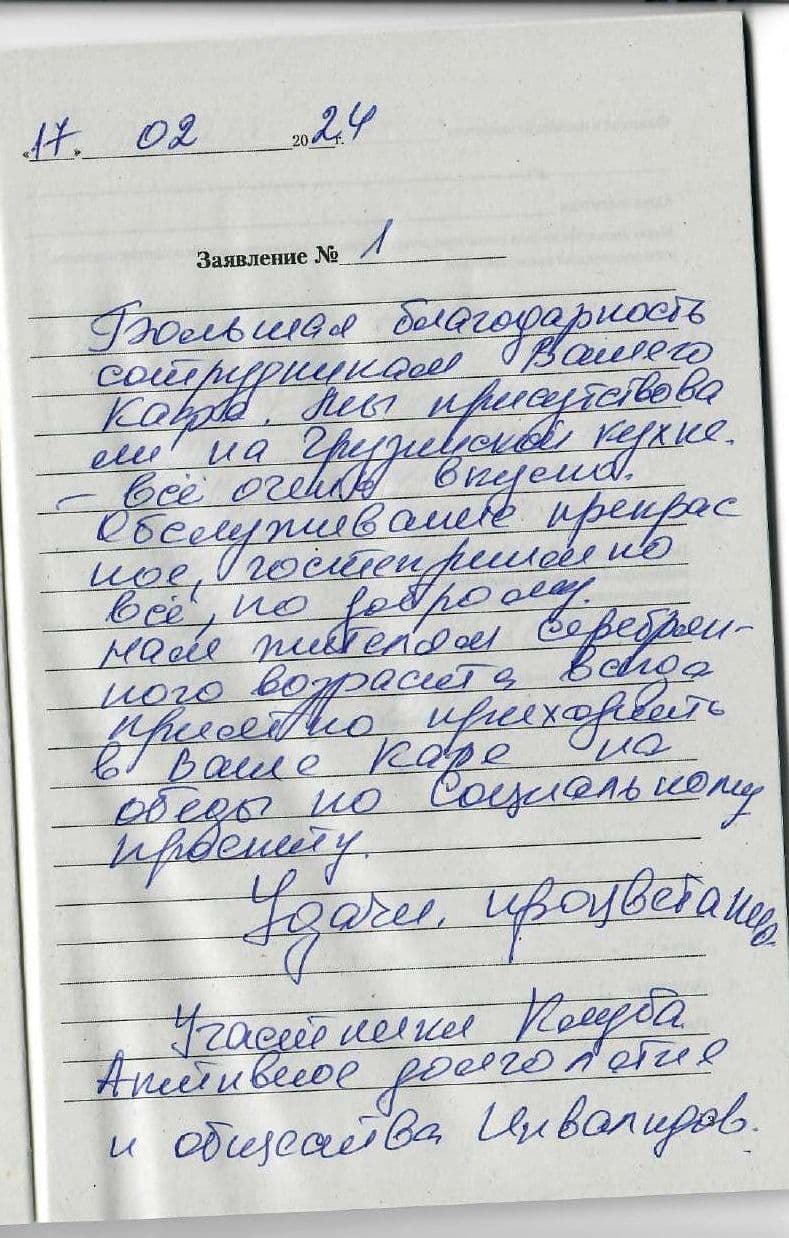 «17» 02 2024 г.
Заявление № 1
Большая благодарность
сотрудникам Вашего
Кафе. Мы присутствова
ли на Грузинской кухне.
– всё очень вкусно.
Обслуживание прекрас
ное, гостеприимно
всё, по доброму.
Нам жителям Серебрян-
ного возраста всегда
приятно приходить
в Ваше Кафе на
обеды по Социальному
проекту.
Удачи, процветания.
Участники Клуба
Активное долголетие
и общества Инвалидов.